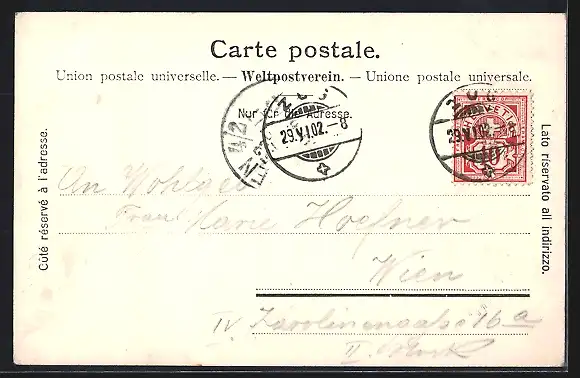 Carte postale.
Union postale universelle. — Weltpostverein. — Unione postale universale.
Nur für die Adresse.
ZUG
29.VI.02.-8
ZUG
29.VI.02.-8
HELVETIA
10
4/2
Côté réservé à l'adresse.
Lato riservato all indirizzo.
An Wohlgeb
Frau Marie Hoefner
Wien
IV Karolinengasse 16a
II. Stock